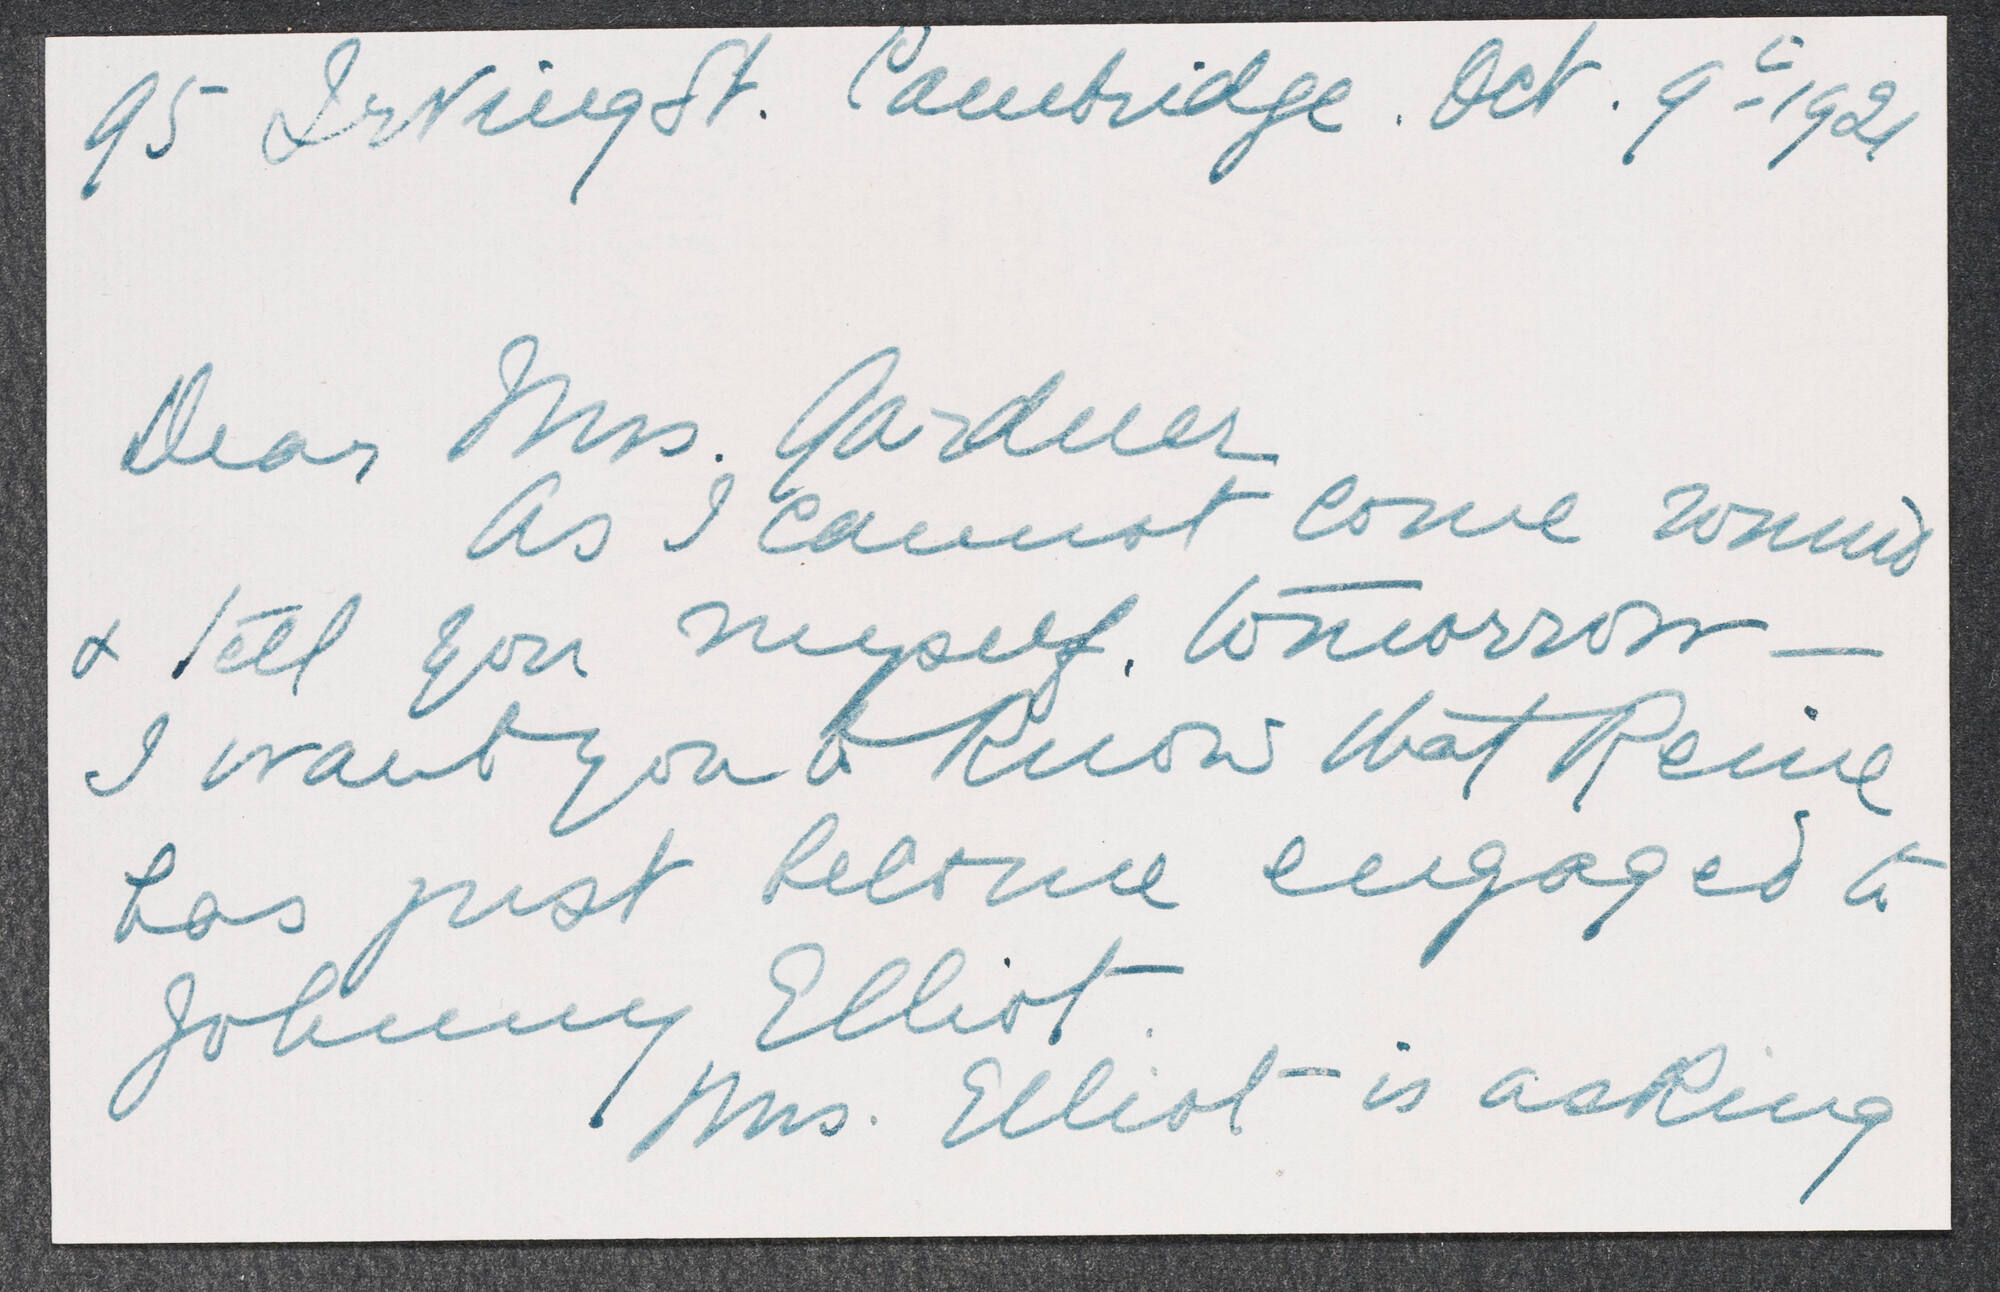 95 Irving St. Cambridge. Oct. 9th 1921
Dear Mrs. Gardner
As I cannot come round
& tell you myself, tomorrow —
I want you to know that Reine
has just become engaged to
Johnny Elliot.
Mrs. Elliot is asking